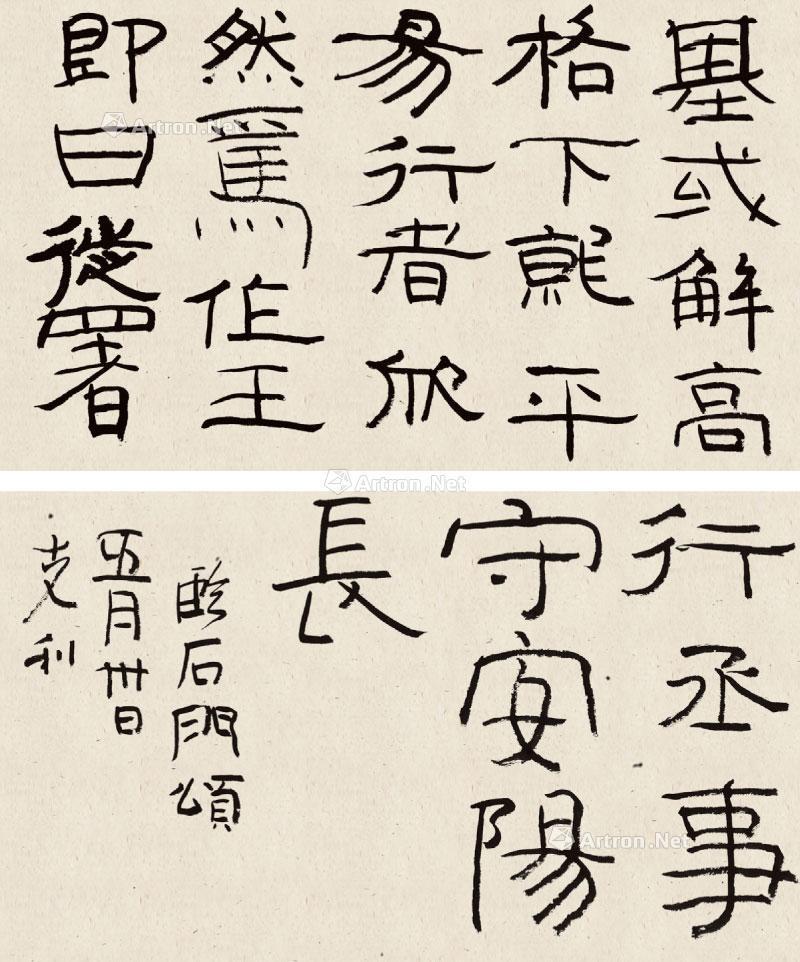 墨或解高
格下就平
易行者欣
然焉伯王
即日徙署
行丞事
守安陽
長
臨石門頌
五月卅日
克利
Artron.Net
Artron.Net
Artron.Net